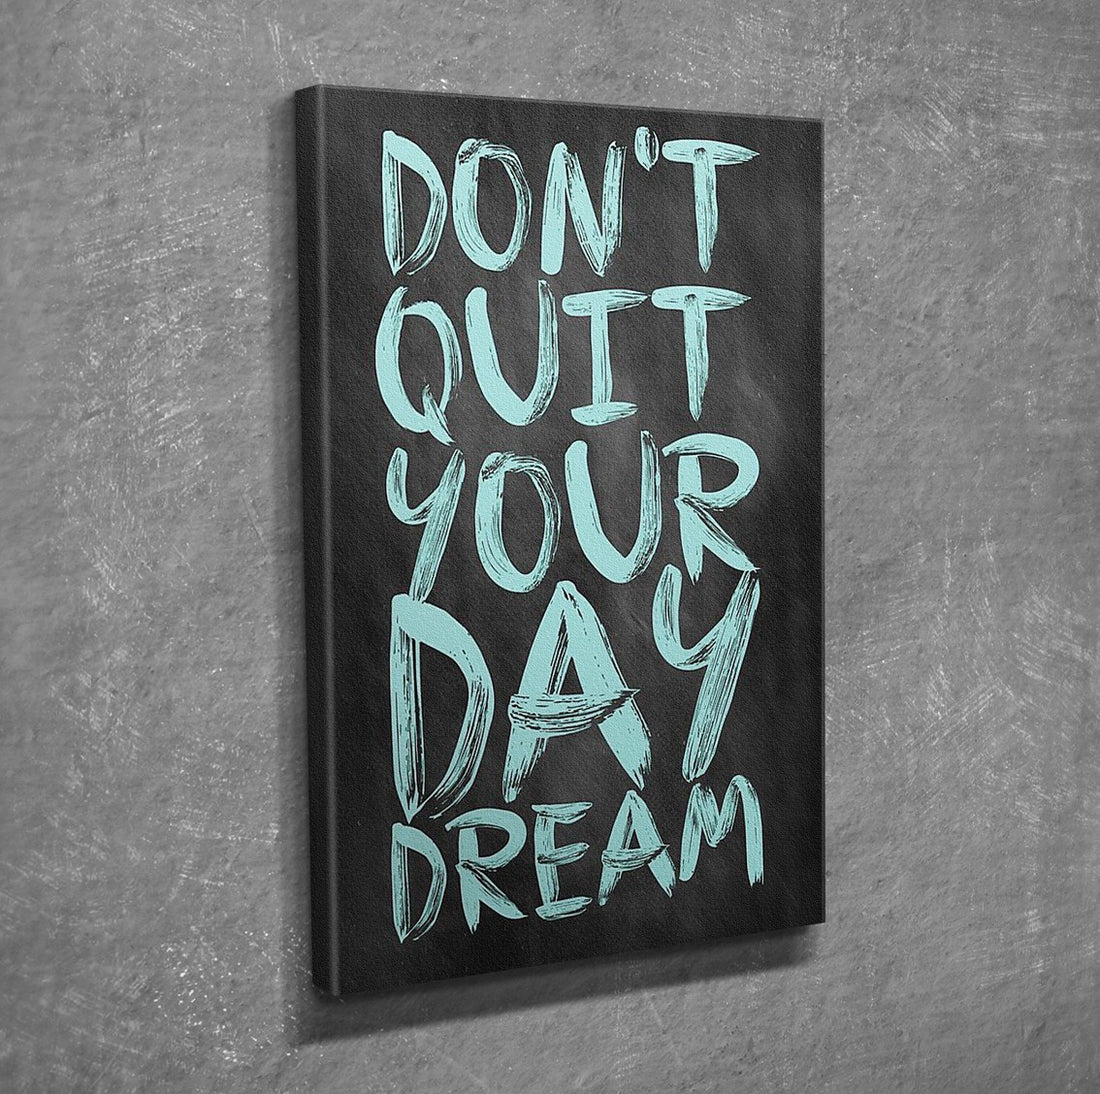 DON'T
QUIT
YOUR
DAY
DREAM